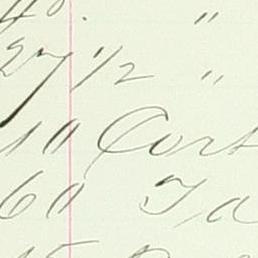 40. "
27 1/2 "
10 Cort
60 Ta